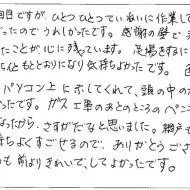 回目ですが、ひとつひとつていねいに作業して
だったのでうれしかったです。感謝の壁で
たことが心に残っています。足場をするに
ちんともとおりになり気持ちよかったです。色
パソコン上に示してくれて、頭の中の
かったです。ガス工事のあとのところのペンキ
なったから、さすがだなと思いました。網戸
ちよくすごせるので、ありがとうござ
のも前よりきれいで、してよかったです。